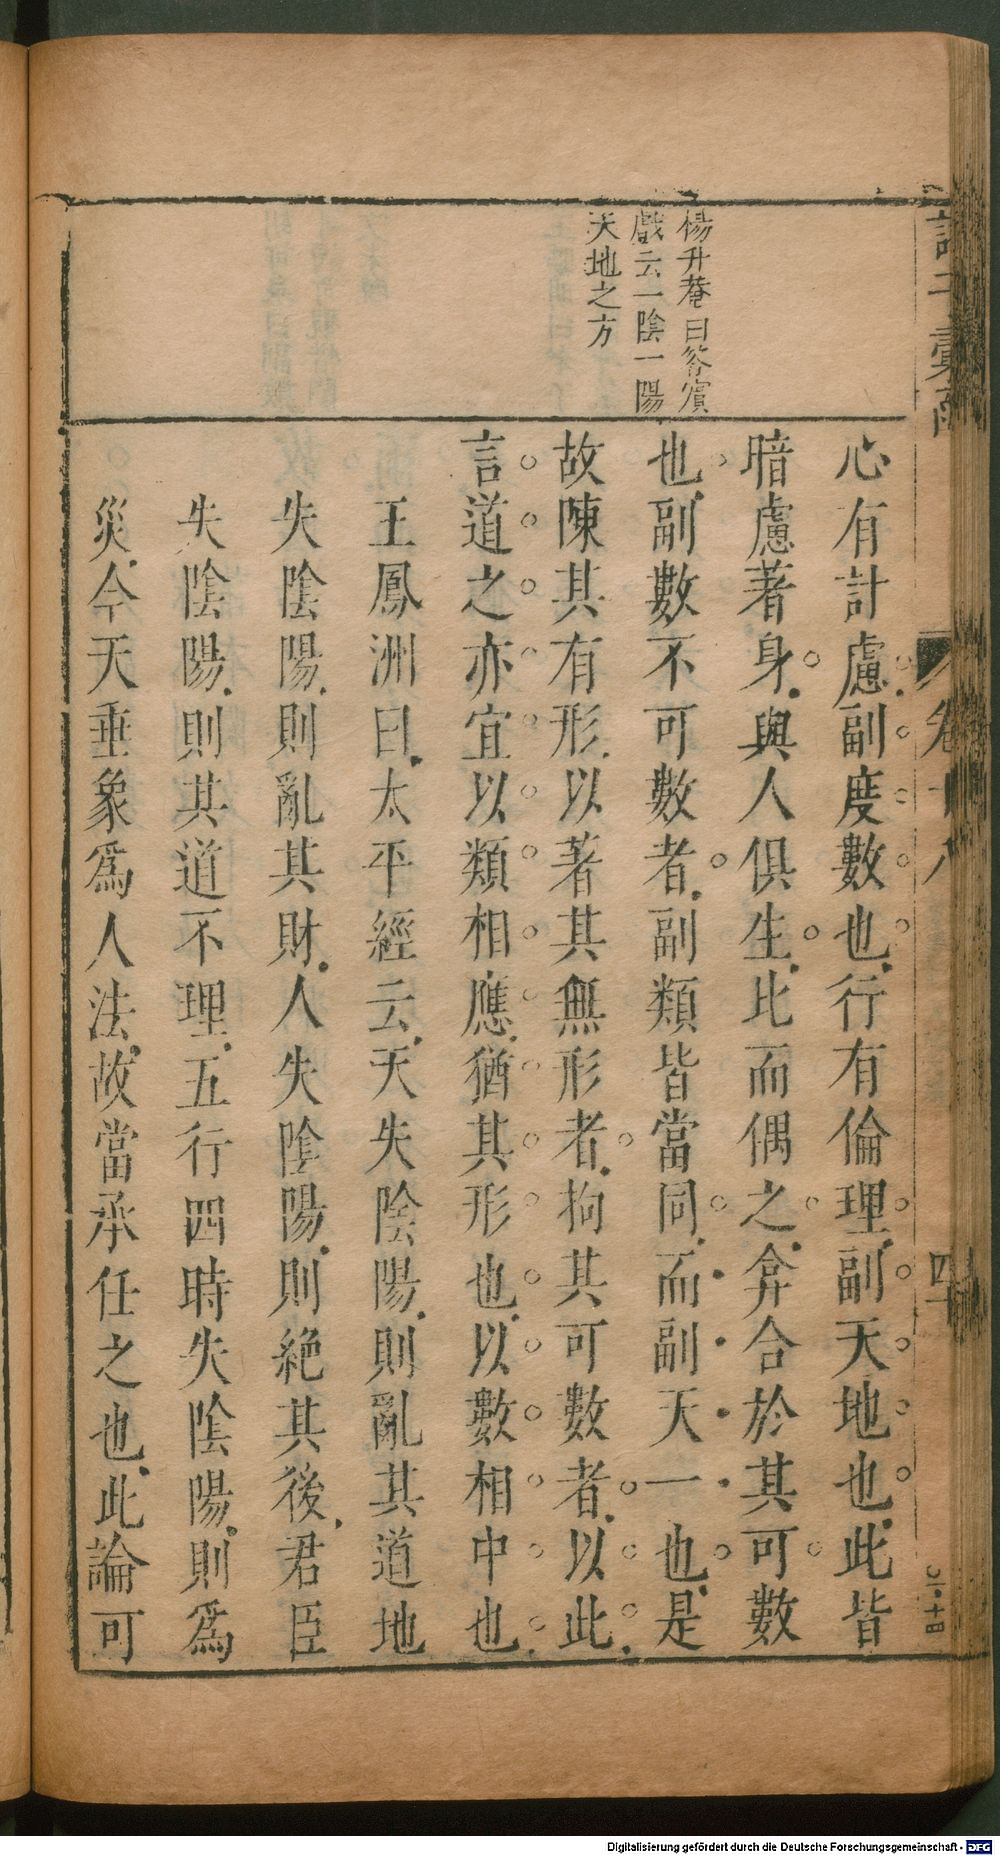 楊升菴曰答賓
戲云一陰一陽
天地之方
心有計慮副度數也行有倫理副天地也此皆
暗慮著身與人俱生比而偶之弇合於其可數
也副數不可數者副類皆當同而副天一也是
故陳其有形以著其無形者拘其可數者以此
言道之亦宜以類相應猶其形也以數相中也
王鳳洲曰太平經云天失陰陽則亂其道地
失陰陽則亂其財人失陰陽則絕其後君臣
失陰陽則其道不理五行四時失陰陽則爲
災今天垂象爲人法故當承任之也此論可
Digitalisierung gefördert durch die Deutsche Forschungsgemeinschaft - DFG